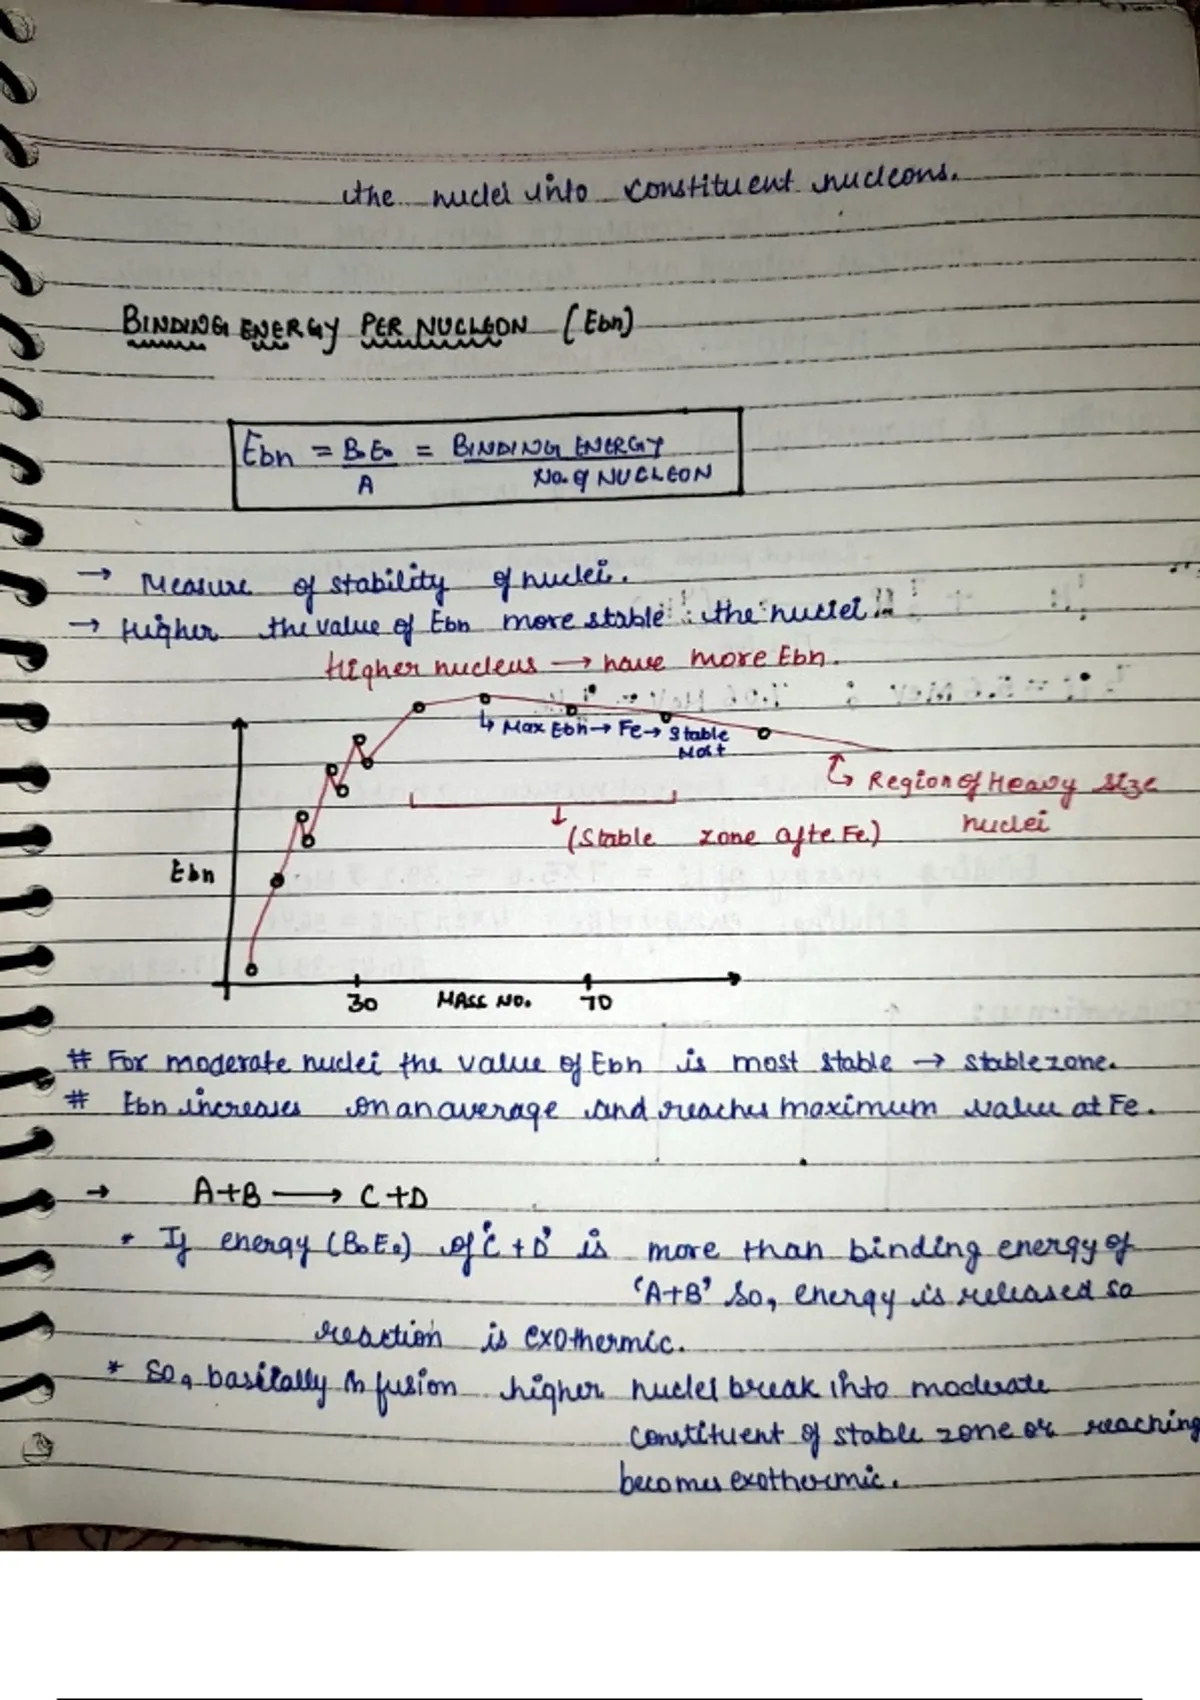 the nuclei into constituent nucleons.
BINDING ENERGY PER NUCLEON (Ebn)
Ebn = B.E. = BINDING ENERGY
A No. of NUCLEON
→ Measure of stability of nuclei.
→ Higher the value of Ebn more stable the nuclei
Higher nucleus → have more Ebn.
↳ Max Ebn → Fe → Stable
Most
Region of Heavy Size
nuclei
(Stable zone afte Fe)
Ebn
30 MASS NO. 70
# For moderate nuclei the value of Ebn is most stable → stable zone.
# Ebn increases on an average and reaches maximum value at Fe.
→ A+B ⟶ C+D
* If energy (B.E.) of 'C + D' is more than binding energy of
'A+B' So, energy is released so
reaction is exothermic.
* So, basically in fusion higher nuclei break into moderate
constituent of stable zone or reaching
becomes exothermic.